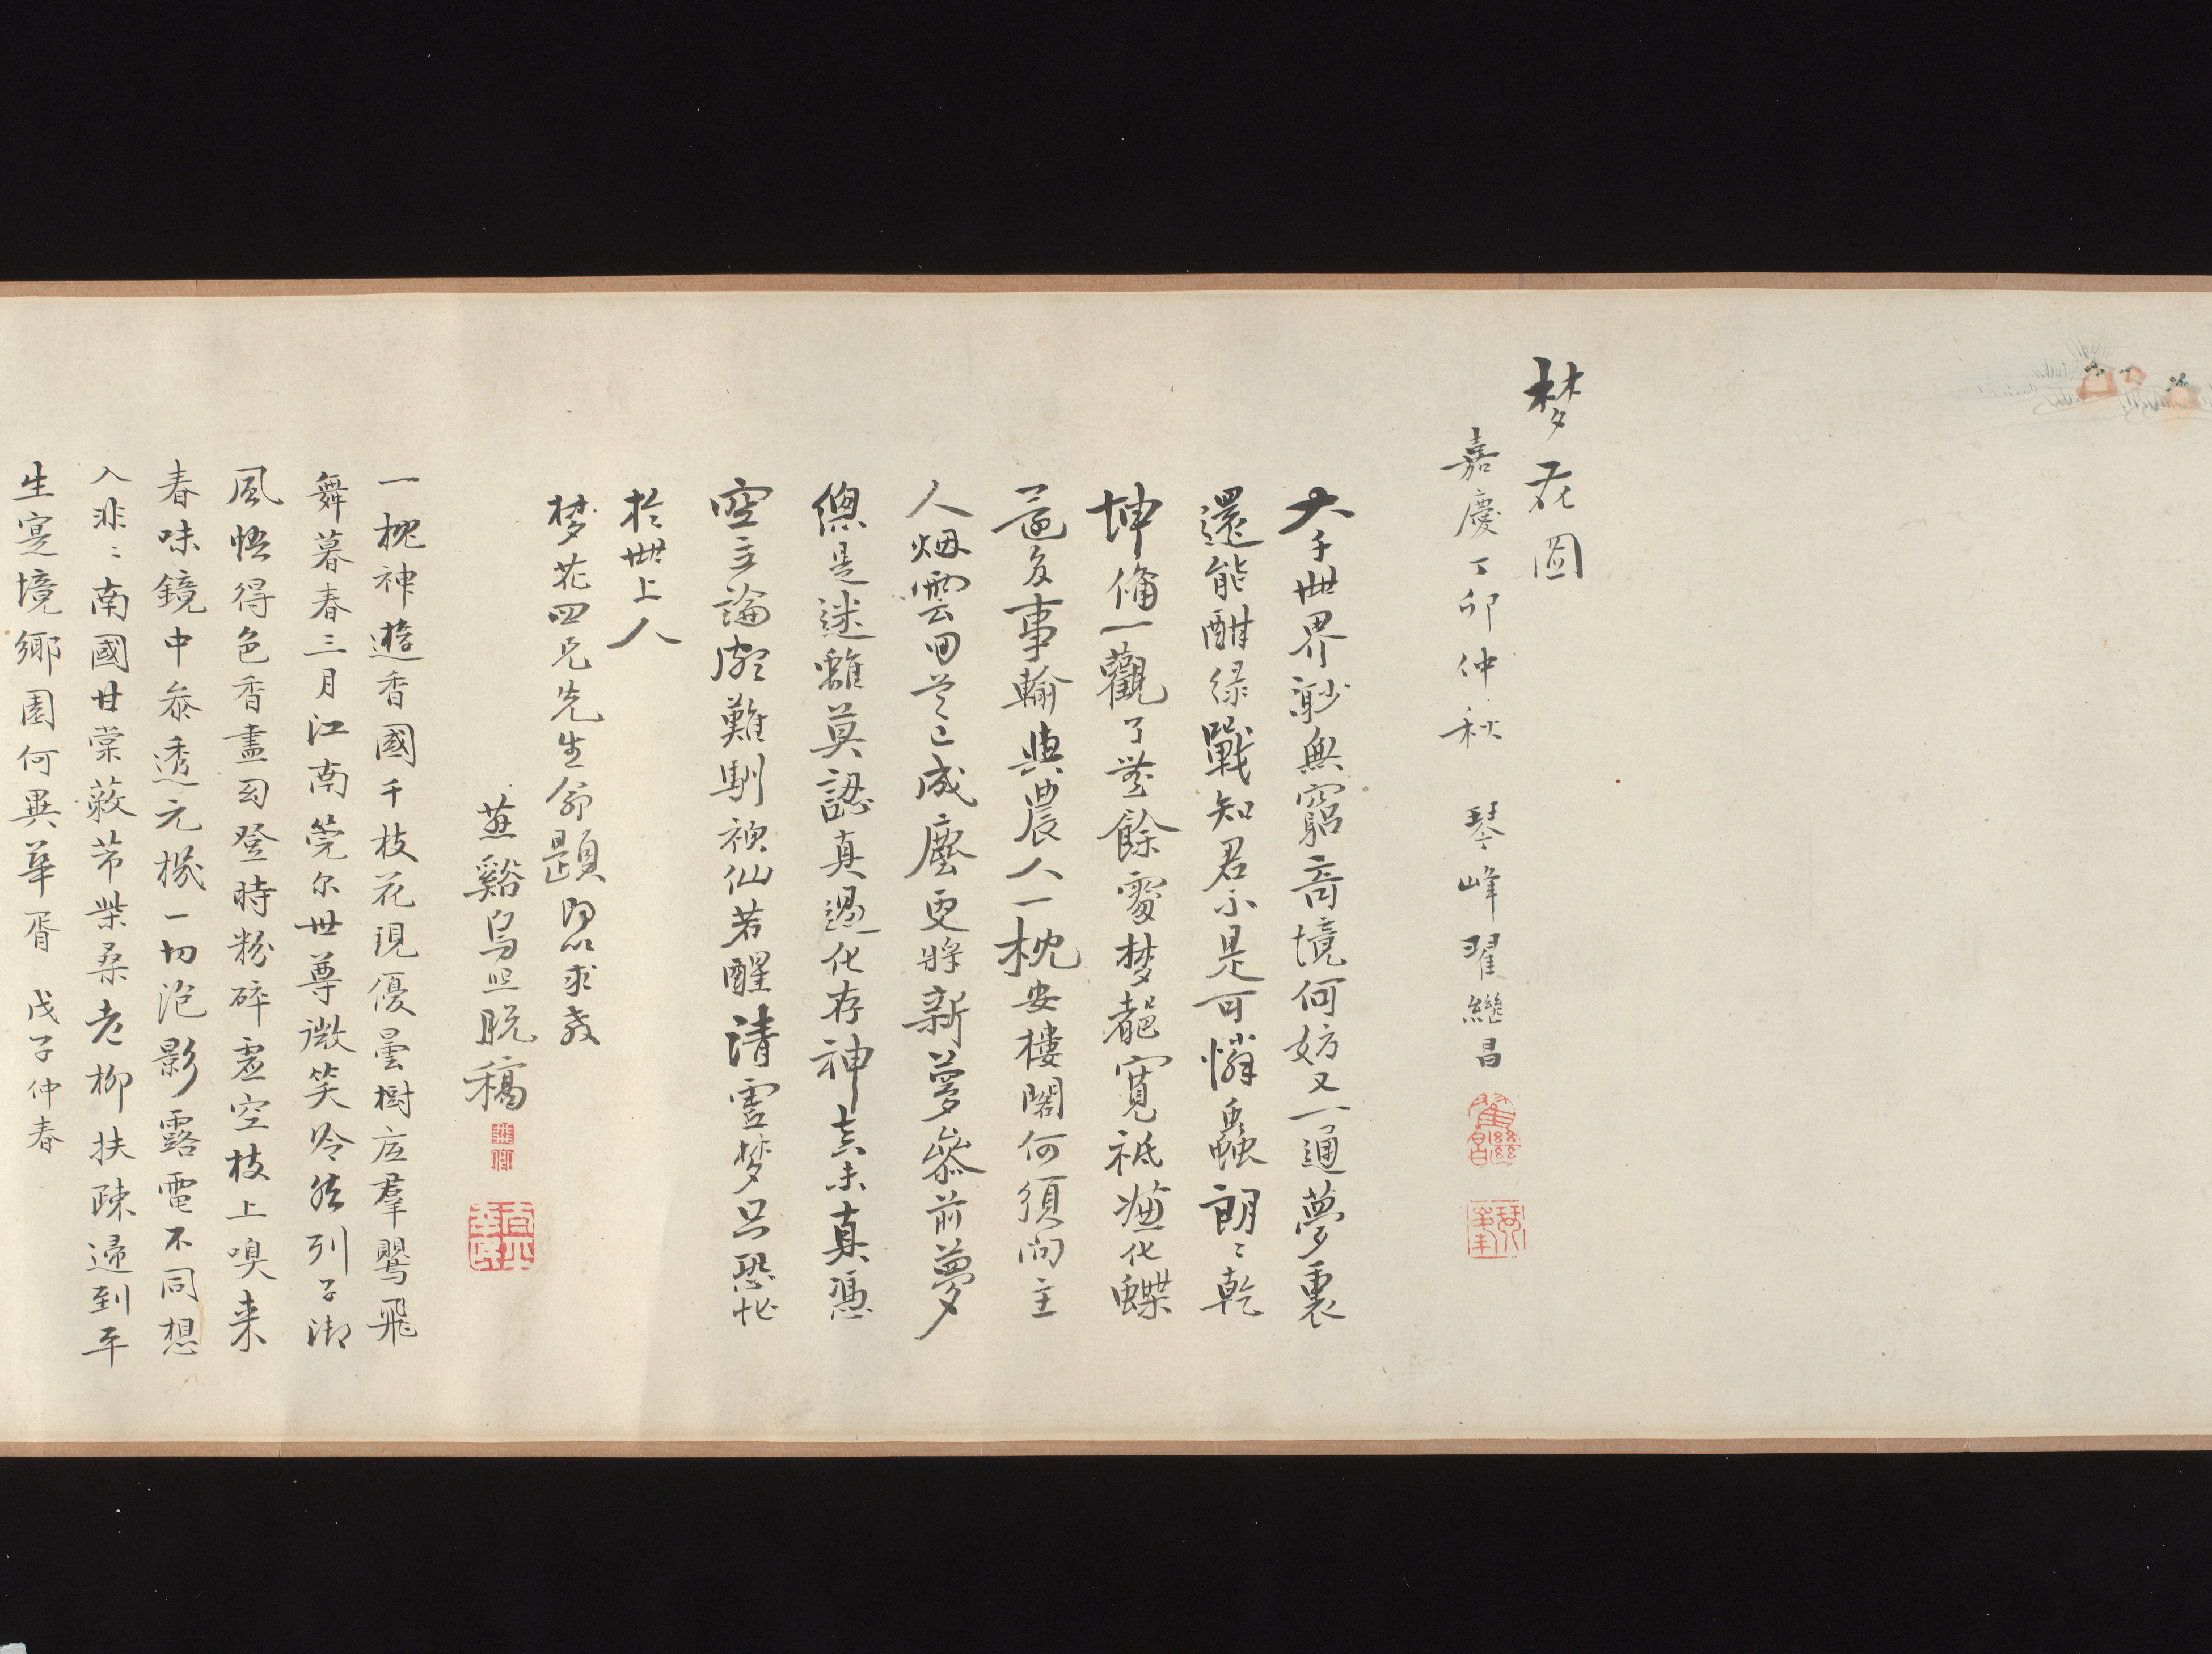 梦花圖
嘉慶丁卯仲秋 琴峰翟繼昌
大千世界渺無窮音境何妨又一通夢裏
還能酣綠戰知君不是可憐蟲朗〻乾
坤備一觀了蓋餘處梦魂寬祗遊化蝶
復事輸與農人一枕安樓閣何須問主
人烟雲回首已成塵更將新夢參前夢
總是迷離莫認真過化存神未真憑
空立論難馴神仙若醒請靈梦只恐忙
於世上人
梦花四兄先生翁題即以求教
蕉谿烏照脫稿
一枕神遊香國千枝花現優曇樹底羣鸎飛
舞暮春三月江南莞尔世尊微笑冷然列子御
風悟得色香盡幻登時粉碎虛空枝上嗅来
春味鏡中参透元機一切泡影露電不同想
入非〻南國甘棠蔽芾柴桑老柳扶疎還到平
生寔境鄉園何異華胥 戊子仲春